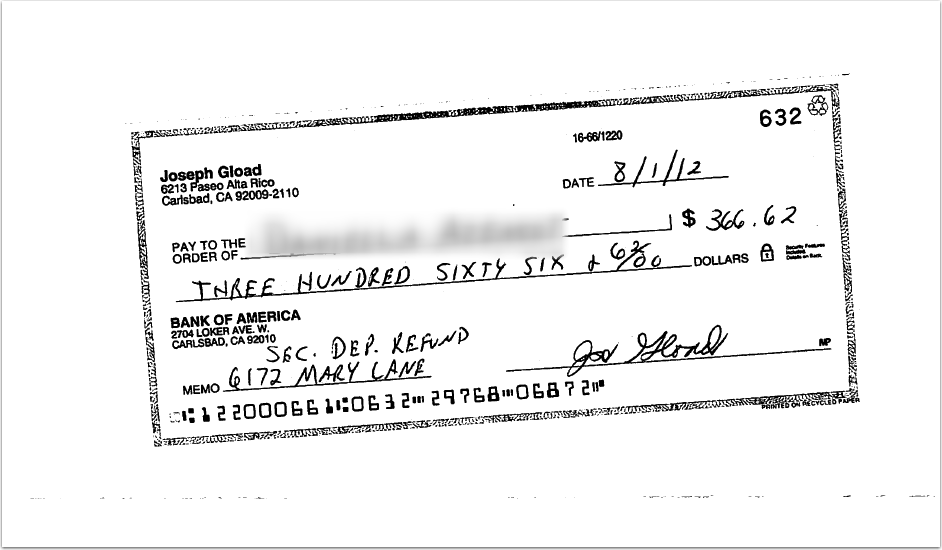 632
16-66/1220
Joseph Gload
6213 Paseo Alta Rico
Carlsbad, CA 92009-2110
DATE 8/1/12
PAY TO THE
ORDER OF
$ 366.62
THREE HUNDRED SIXTY SIX & 62/00 DOLLARS
Security Features
Included.
Details on Back.
BANK OF AMERICA
2704 LOKER AVE. W.
CARLSBAD, CA 92010
SEC. DEP. REFUND
MEMO 6172 MARY LANE
Joe Gload
MP
⑆122000661⑆0632⑈29768⑈06872⑈
PRINTED ON RECYCLED PAPER